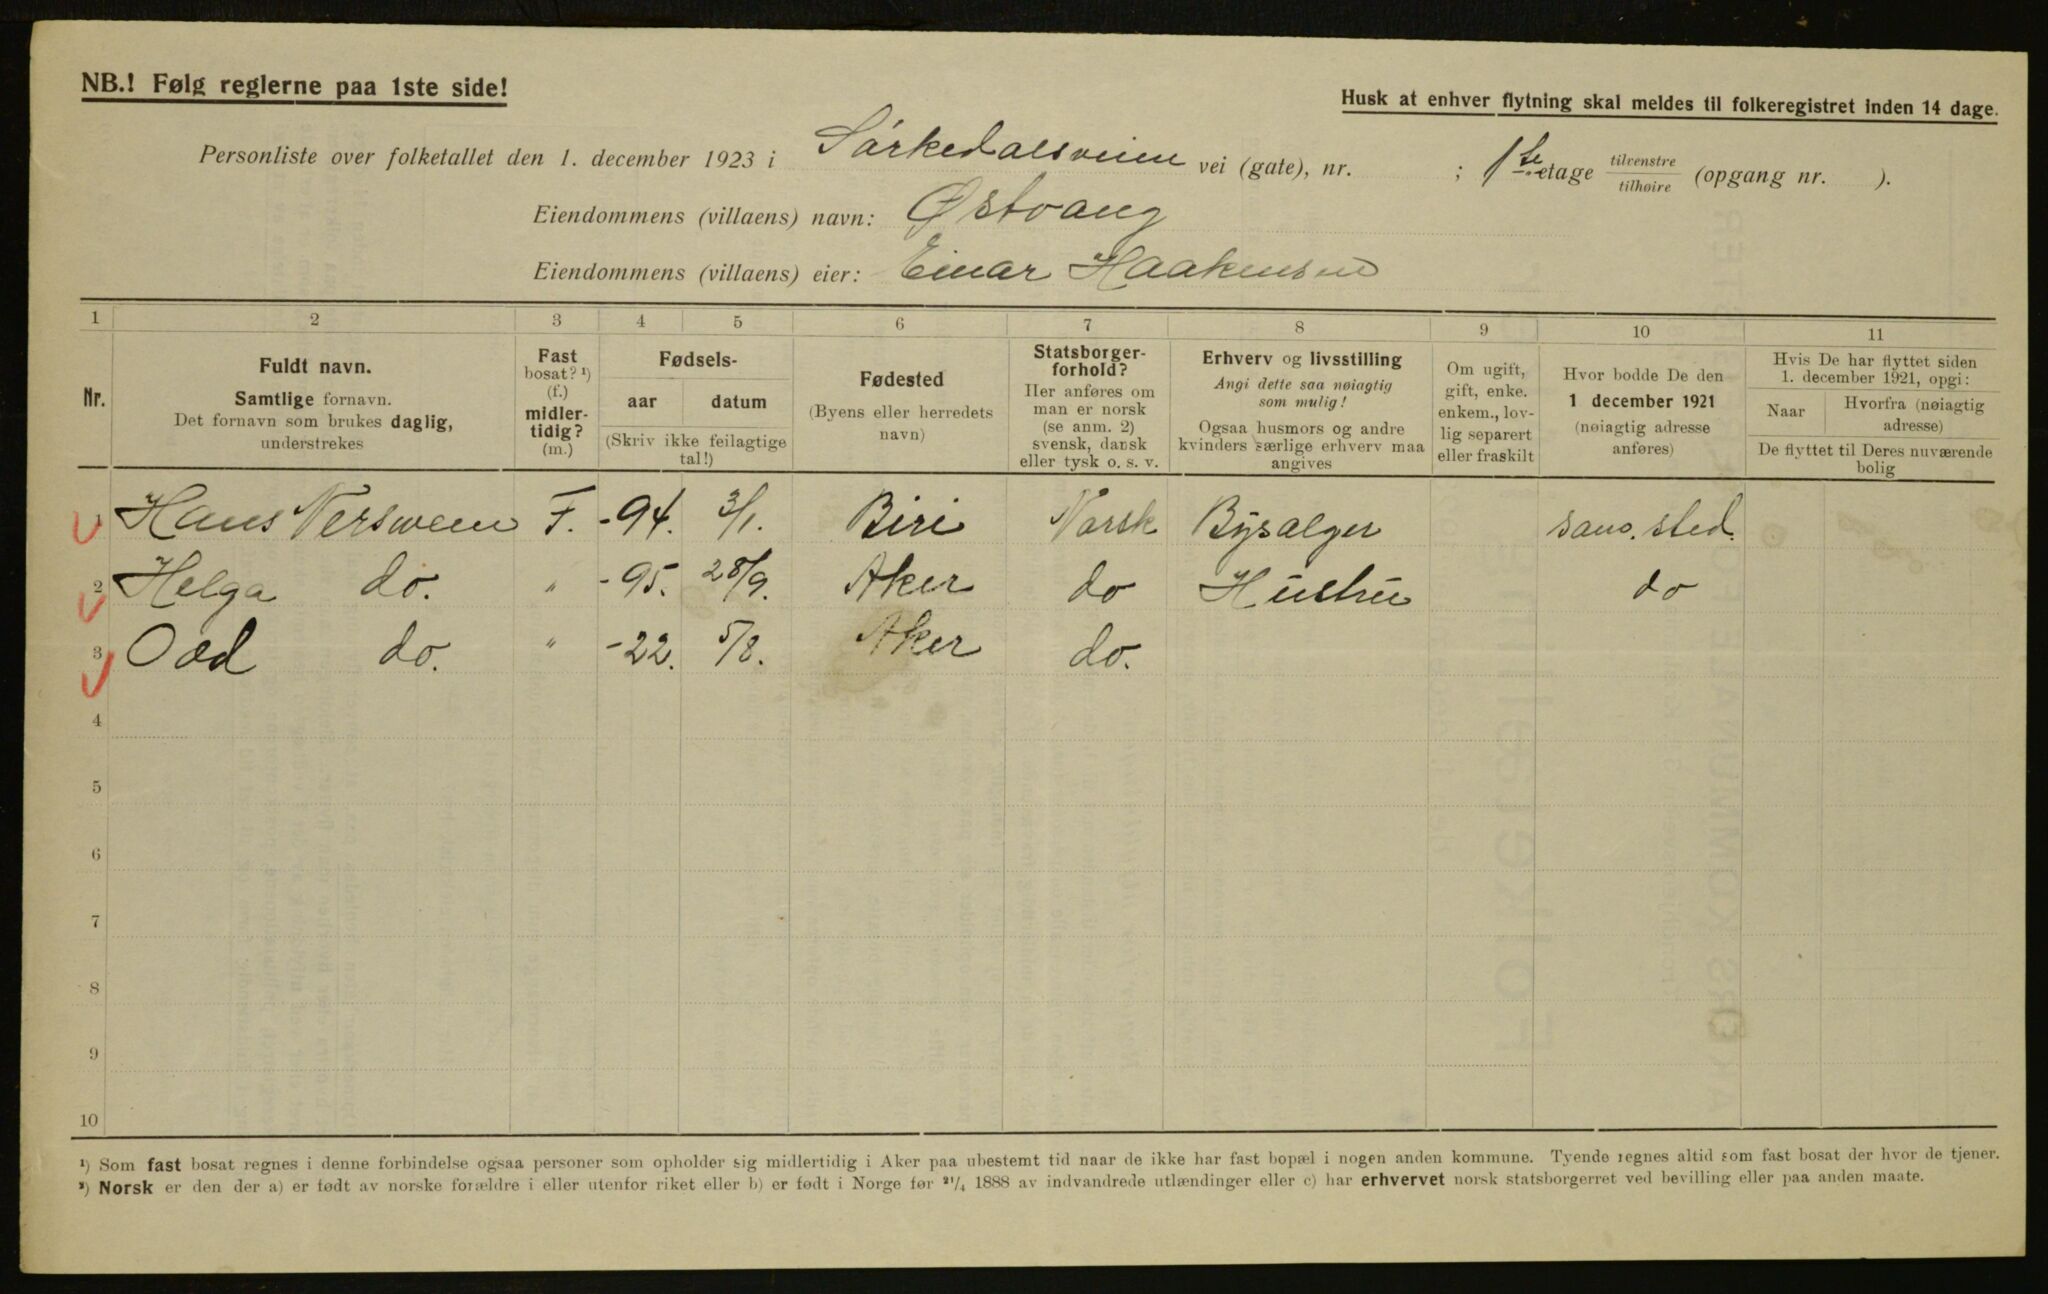 NB.! Følg reglerne paa 1ste side!
Husk at enhver flytning skal meldes til folkeregistret inden 14 dage.
Personliste over folketallet den 1. december 1923 i Sørkedalsveien vei (gate), nr. ; 1ste etage tilvenstre tilhøire (opgang nr. ).
Eiendommens (villaens) navn: Østvang
Eiendommens (villaens) eier: Einar Haakensen
1 2 3 4 5 6 7 8 9 10 11
Nr.
Fuldt navn.
Samtlige fornavn.
Det fornavn som brukes daglig,
understrekes
Fast
bosat? ¹)
(f.)
midler-
tidig?
(m.)
Fødsels-
aar datum
(Skriv ikke feilagtige
tal!)
Fødested
(Byens eller herredets
navn)
Statsborger-
forhold?
Her anføres om
man er norsk
(se anm. 2)
svensk, dansk
eller tysk o. s. v.
Erhverv og livsstilling
Angi dette saa nøiagtig
som mulig!
Ogsaa husmors og andre
kvinders særlige erhverv maa
angives
Om ugift,
gift, enke.
enkem., lov-
lig separert
eller fraskilt
Hvor bodde De den
1 december 1921
(nøiagtig adresse
anføres)
Hvis De har flyttet siden
1. december 1921, opgi:
Naar Hvorfra (nøiagtig
adresse)
De flyttet til Deres nuværende
bolig
1 Hans Nersween F. -94. 3/1. Biri Norsk Bysalger sam. sted.
2 Helga do. " -95. 28/9. Aker do Hustru do
3 Odd do. " -22. 5/8. Aker do.
4
5
6
7
8
9
10
¹) Som fast bosat regnes i denne forbindelse ogsaa personer som opholder sig midlertidig i Aker paa ubestemt tid naar de ikke har fast bopæl i nogen anden kommune. Tyende regnes altid som fast bosat der hvor de tjener.
²) Norsk er den der a) er født av norske forældre i eller utenfor riket eller b) er født i Norge før ²¹/₄ 1888 av indvandrede utlændinger eller c) har erhvervet norsk statsborgerret ved bevilling eller paa anden maate.